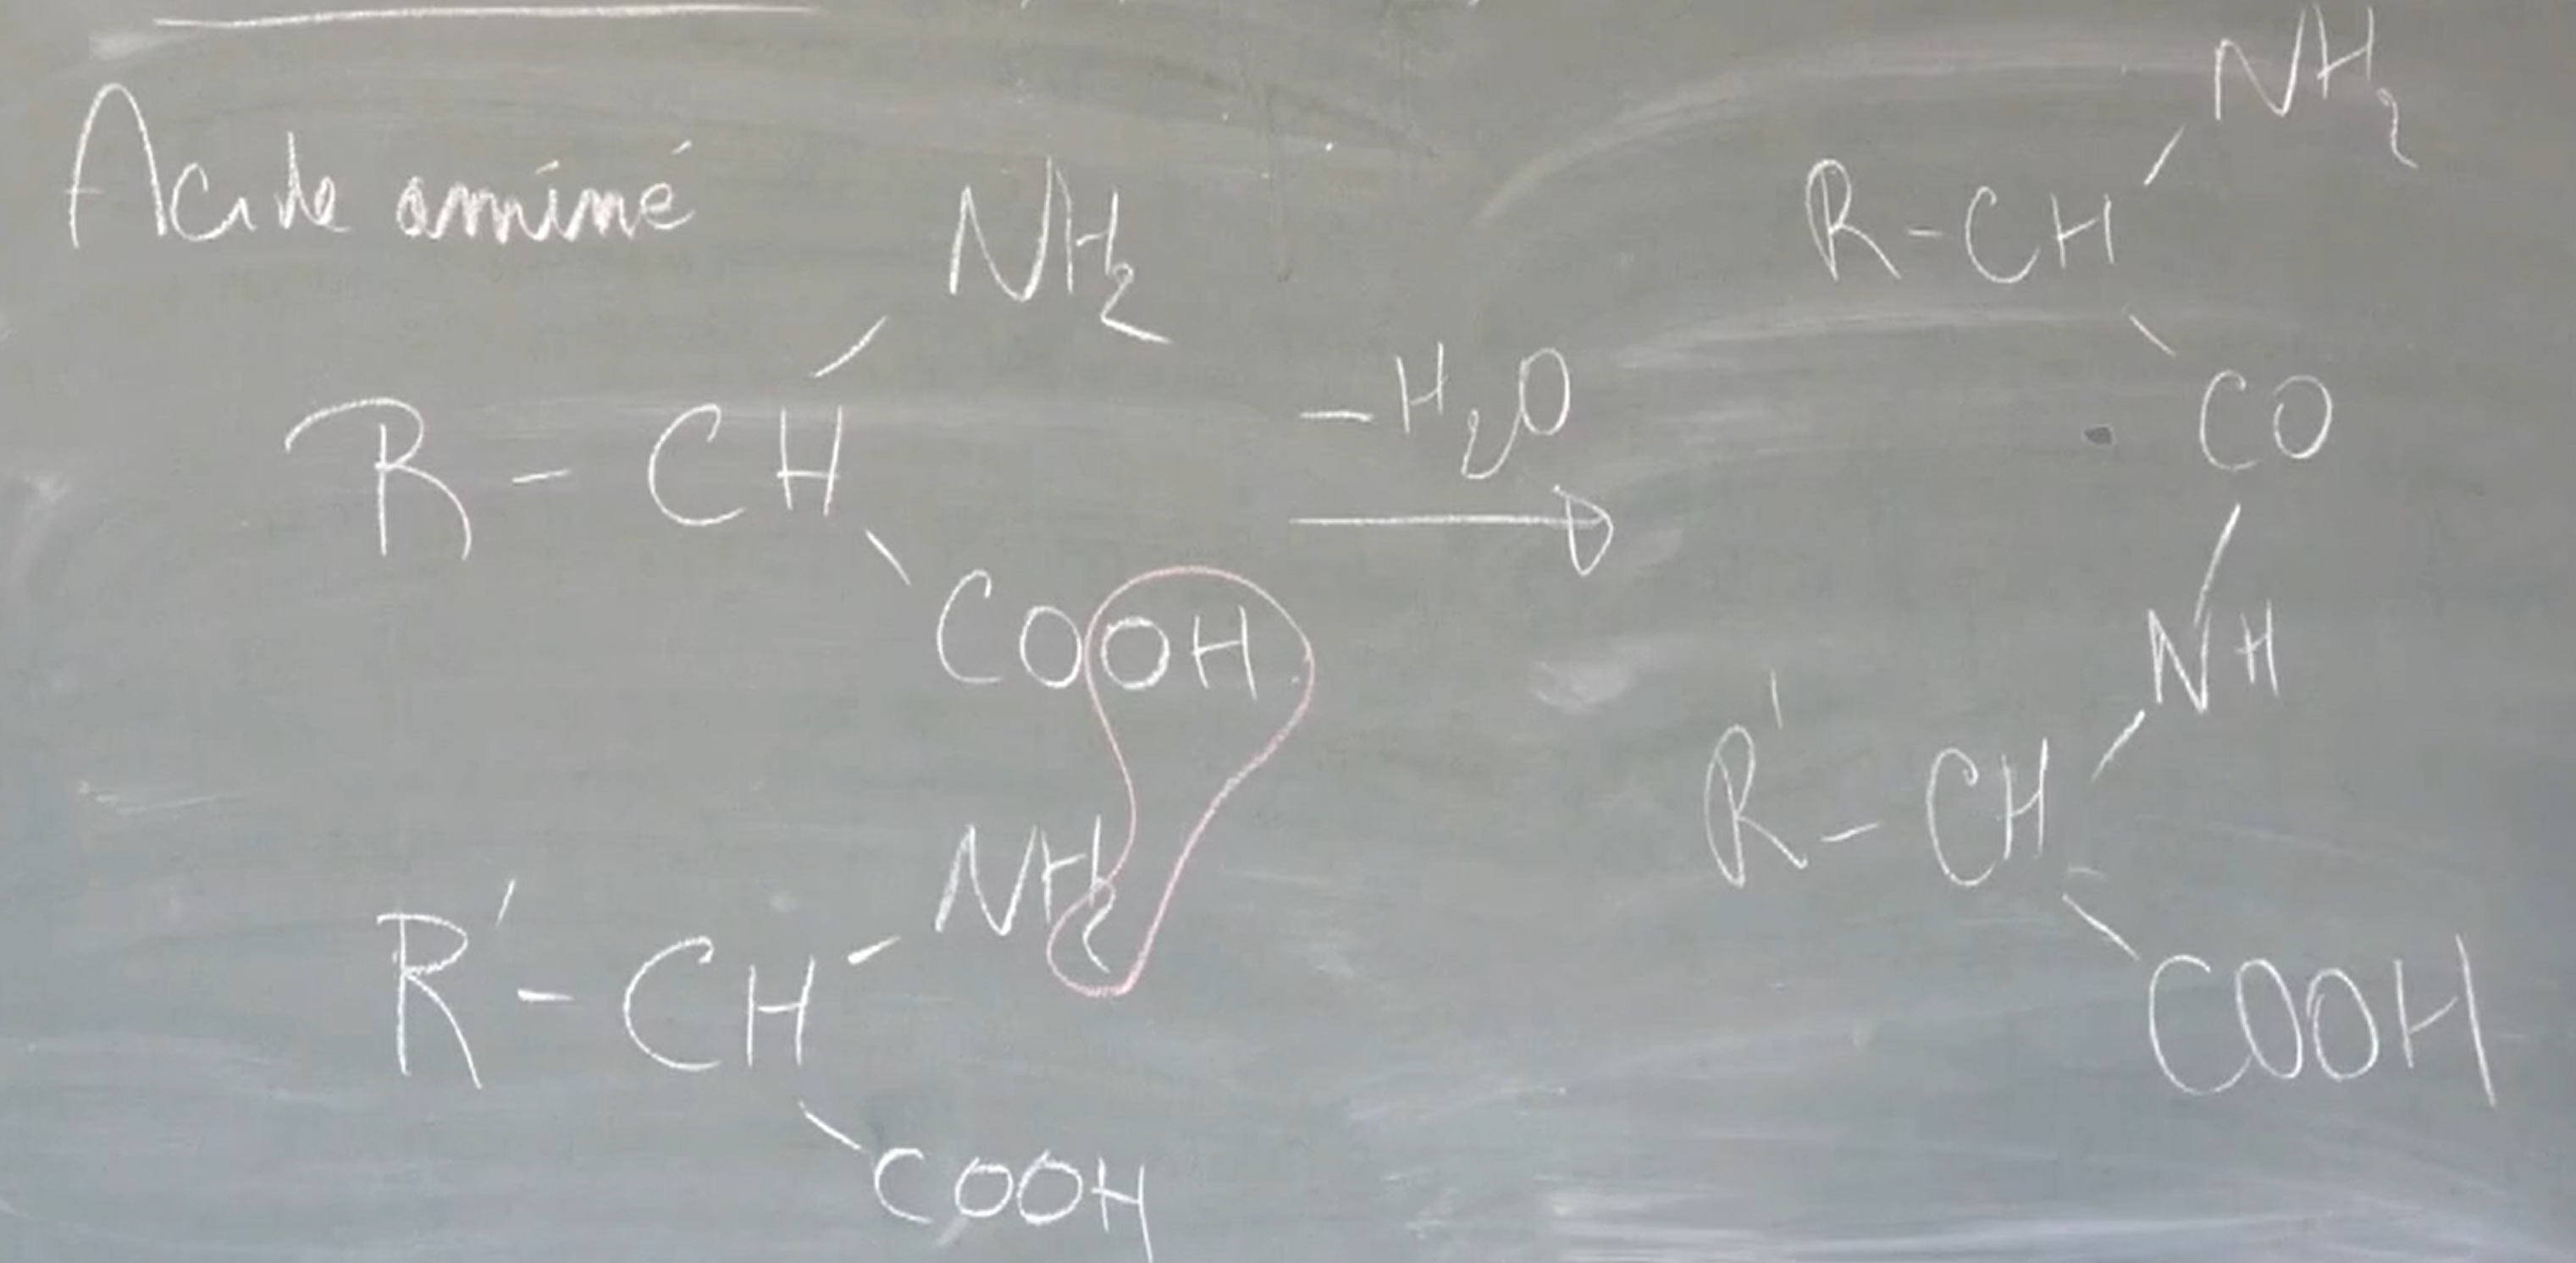 Acide aminé
NH2
R - CH
COOH
R' - CH - NH2
COOH
- H2O
NH2
R - CH
CO
NH
R' - CH
COOH